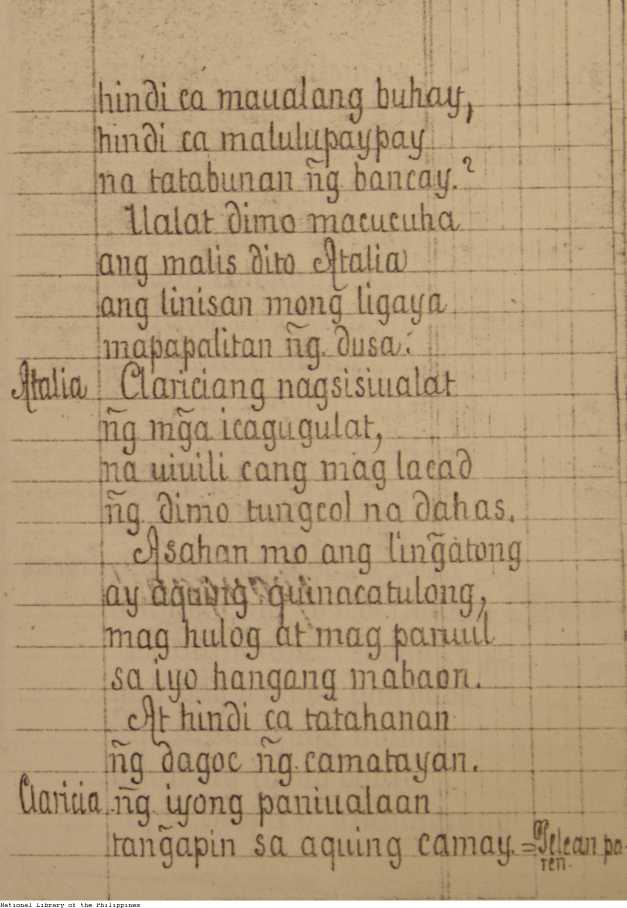 hindi ca maualang buhay,
hindi ca malulupaypay
na tatabunan ñg bancay.?
Ualat dimo macucuha
ang malis dito Atalia
ang linisan mong̃ ligaya
mapapalitan ñg. dusa.
Atalia Clariciang nagsisiualat
ñg mg̃a icagugulat,
na uiuili cang mag lacad
ñg. dimo tungcol na dahas.
Asahan mo ang ling̃atong
ay aquing quinacatulong,
mag hulog at mag
sa iyo hangang mabaon.
At hindi ca tatahanan
ñg dagoc ñg. camatayan.
Claricia ñg. iyong paniualaan
tang̃apin sa aquing camay. = Pelean pa
ren.
National Library of the Philippines